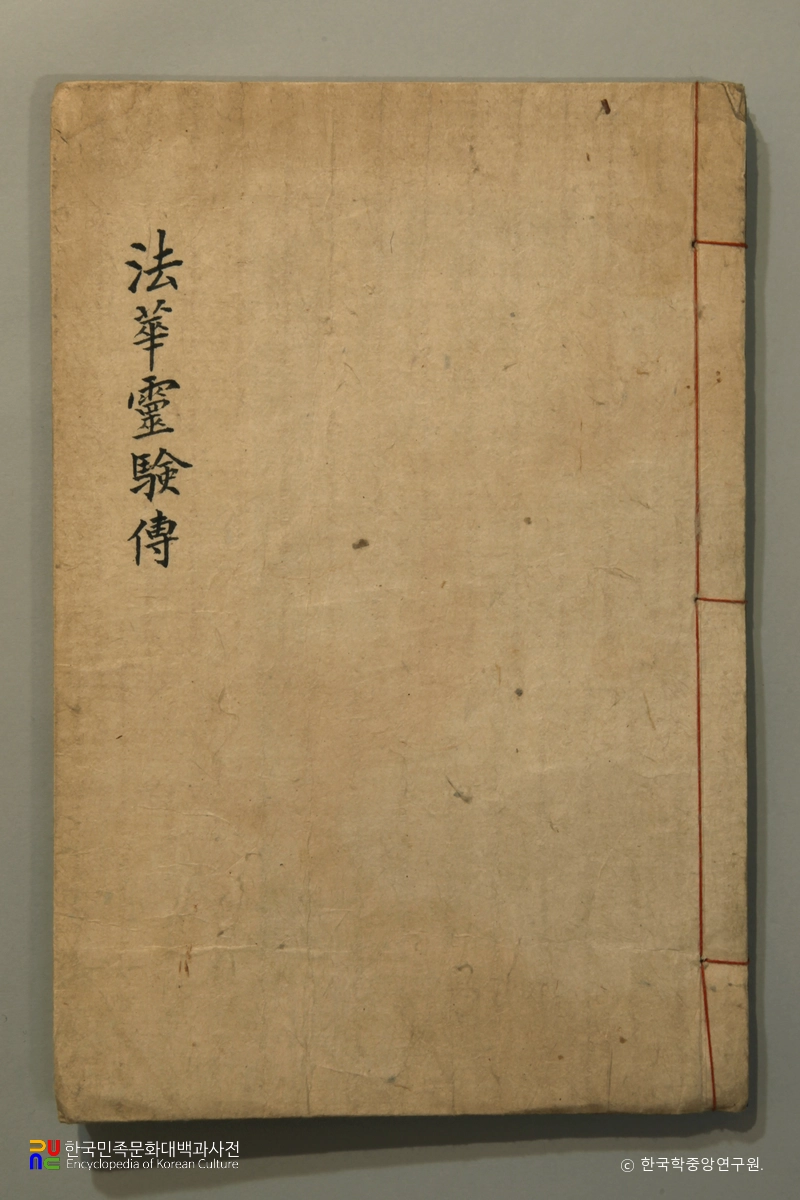 法華靈験傳
한국민족문화대백과사전
Encyclopedia of Korean Culture
© 한국학중앙연구원.